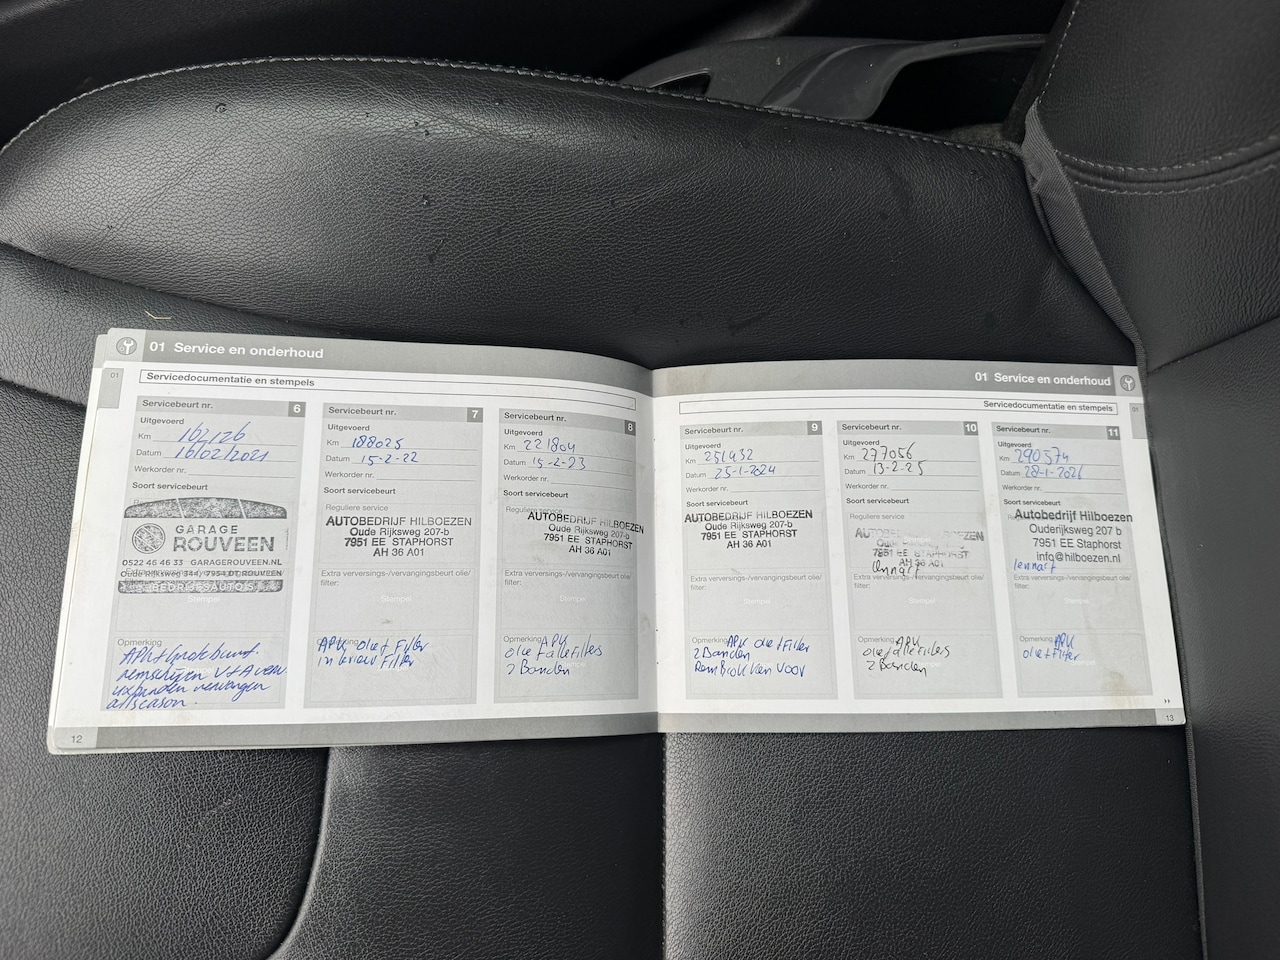 01 Service en onderhoud
01
Servicedocumentatie en stempels
Servicebeurt nr. 6
Uitgevoerd
Km 162126
Datum 16/02/2021
Werkorder nr.
Soort servicebeurt
GARAGE
ROUVEEN
0522 46 46 33 GARAGEROUVEEN.NL
Oude Rijksweg 344, 7954 DT, ROUVEEN
BEDRIJFSAUTO'S
Stempel
Opmerking
APK + grote beurt
remschijven V+A vern.
banden vervangen
allseason.
Servicebeurt nr. 7
Uitgevoerd
Km 188025
Datum 15-2-22
Werkorder nr.
Soort servicebeurt
Reguliere service
AUTOBEDRIJF HILBOEZEN
Oude Rijksweg 207-b
7951 EE STAPHORST
AH 36 A01
Extra verversings-/vervangingsbeurt olie/
filter:
Stempel
Opmerking
APK, olie + Filter
interieur Filter
Servicebeurt nr. 8
Uitgevoerd
Km 221804
Datum 15-2-23
Werkorder nr.
Soort servicebeurt
Reguliere service
AUTOBEDRIJF HILBOEZEN
Oude Rijksweg 207-b
7951 EE STAPHORST
AH 36 A01
Extra verversings-/vervangingsbeurt olie/
filter:
Stempel
Opmerking APK
olie + alle Filters
2 Banden
12
01 Service en onderhoud
01
Servicedocumentatie en stempels
Servicebeurt nr. 9
Uitgevoerd
Km 251432
Datum 25-1-2024
Werkorder nr.
Soort servicebeurt
AUTOBEDRIJF HILBOEZEN
Oude Rijksweg 207-b
7951 EE STAPHORST
AH 36 A01
Extra verversings-/vervangingsbeurt olie/
filter:
Stempel
Opmerking APK olie + Filter
2 Banden
Remblokken voor
Servicebeurt nr. 10
Uitgevoerd
Km 277056
Datum 13-2-25
Werkorder nr.
Soort servicebeurt
Reguliere service
AUTOBEDRIJF HILBOEZEN
7951 EE STAPHORST
AH 36 A01
Lennart
Extra verversings-/vervangingsbeurt olie/
filter:
Stempel
Opmerking APK
olie + alle Filters
2 Banden
Servicebeurt nr. 11
Uitgevoerd
Km 290574
Datum 28-1-2026
Werkorder nr.
Soort servicebeurt
Autobedrijf Hilboezen
Ouderijksweg 207 b
7951 EE Staphorst
info@hilboezen.nl
Lennart
Extra verversings-/vervangingsbeurt olie/
filter:
Stempel
Opmerking APK
olie + Filter
13